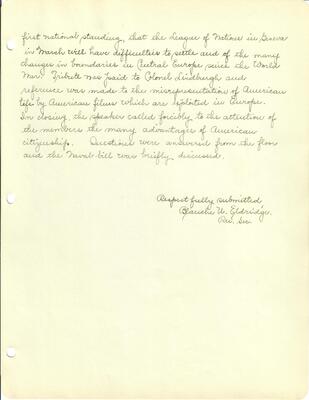 first national standing, that the League of Nations in Geneva
in March will have difficulties to settle and of the many
changes in boundaries in Central Europe since the World
War. Tribute was paid to Colonel Lindbergh and
reference was made to the misrepresentation of American
life by American films which are exploited in Europe.
In closing, the speaker called forcibly to the attention of
the members the many advantages of American
citizenship. Questions were answered from the floor
and the Naval bill was briefly discussed.
Respectfully submitted
Blanche U. Eldridge.
Rec. Sec.